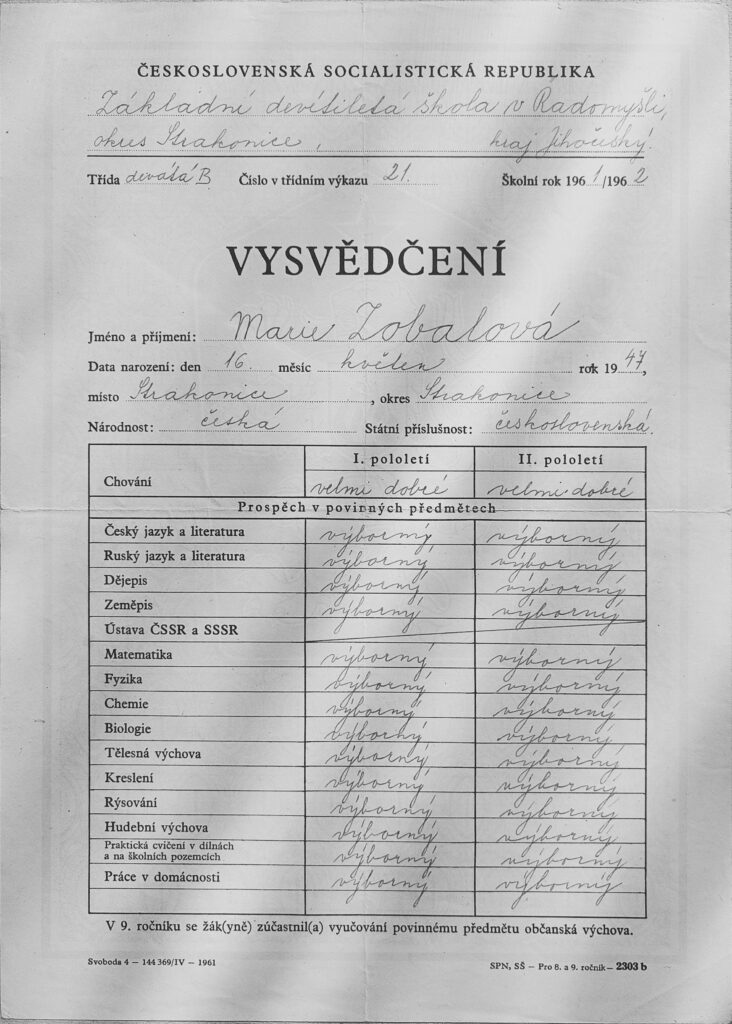 ČESKOSLOVENSKÁ SOCIALISTICKÁ REPUBLIKA
Základní devítiletá škola v Radomyšli,
okres Strakonice, kraj Jihočeský.
Třída devátá B Číslo v třídním výkazu 21. Školní rok 1961/1962
VYSVĚDČENÍ
Jméno a příjmení: Marie Zobalová
Data narození: den 16. měsíc květen rok 1947,
místo Strakonice, okres Strakonice
Národnost: česká Státní příslušnost: československá.
I. pololetí II. pololetí
Chování velmi dobré velmi dobré
Prospěch v povinných předmětech
Český jazyk a literatura výborný výborný
Ruský jazyk a literatura výborný výborný
Dějepis výborný výborný
Zeměpis výborný výborný
Ústava ČSSR a SSSR
Matematika výborný výborný
Fyzika výborný výborný
Chemie výborný výborný
Biologie výborný výborný
Tělesná výchova výborný výborný
Kreslení výborný výborný
Rýsování výborný výborný
Hudební výchova výborný výborný
Praktická cvičení v dílnách
a na školních pozemcích výborný výborný
Práce v domácnosti výborný výborný
V 9. ročníku se žák(yně) zúčastnil(a) vyučování povinnému předmětu občanská výchova.
Svoboda 4 – 144 369/IV – 1961 SPN, SŠ – Pro 8. a 9. ročník – 2303 b